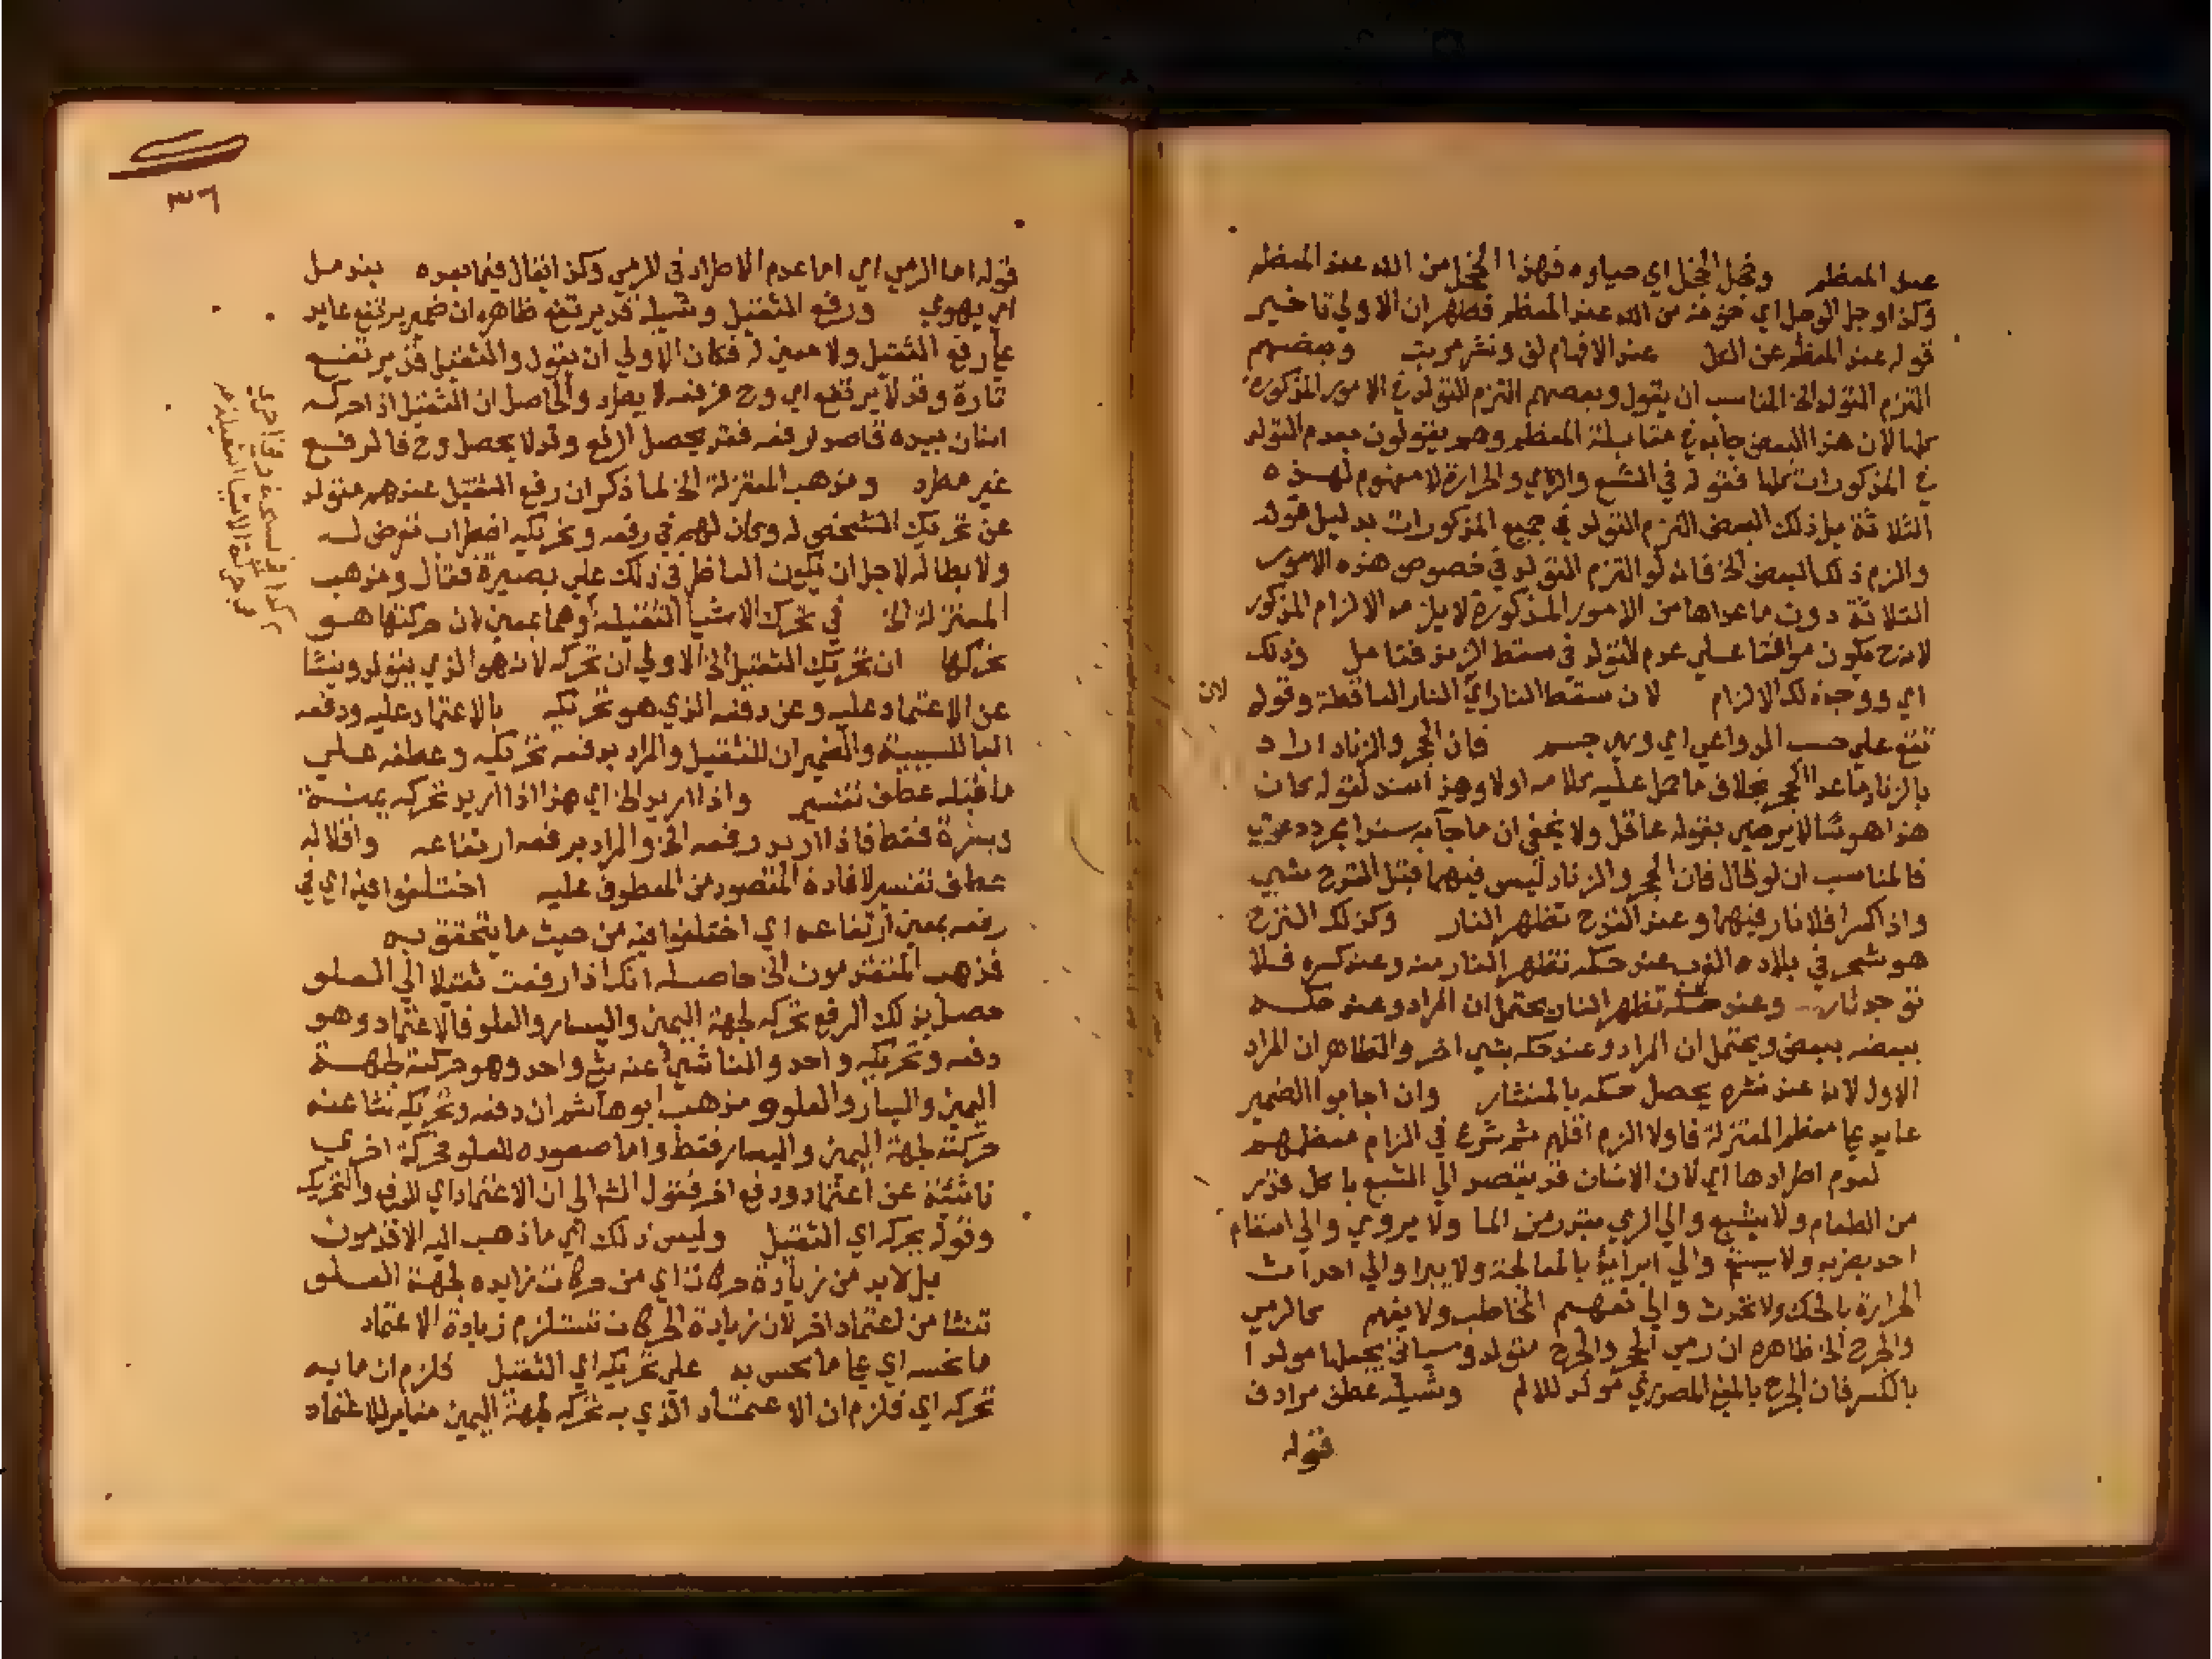 عند المعظم وخجل الخجل اي حياوه فهذا الخجل من الله عند المعظم
وكذا وجل الوجل اي خوفه من الله عند المعظم فظهر ان الاولي تاخير
قوله عند المعظم عن الكل عند الافهام لف ونشر مرتب وبعضهم
التزم التولد الخ المناسب ان يقول وبعضهم التزم التولد في الامور المذكورة
كلها لان هذا البعض جابوه في مقابلة المعظم وهم يقولون بعدم التولد
في المذكورات كلها فقوله في الشبع والري والحرارة لا مفهوم لهذه
الثلاثة بل ذلك البعض التزم التولد في جميع المذكورات بدليل قوله
والزم ذلك البعض الخ فانه لو التزم التولد في خصوص هذه الامور
الثلاثة دون ما عداها من الامور المذكورة لا يلزمه الالزام المذكور
لانه ح يكون موافقا علي عدم التولد في سقط الزند فتامل وذلك
اي ووجه ذلك الالزام لان سقط النار اي النار الساقطة وقوله لان
تقع علي حسب الدواعي اي وهي جسم فان الحجر والزناد اراد
بالزناد ما عدا الحجر بخلاف ما حمل عليه كلامه اولا وهذا سند لقوله كان
هذا هوسا لا يرضي بقوله عاقل ولا يخفي ان ما جا به سندا مجرد دعوي
فالمناسب ان لو قال فان الحجر والزناد ليس فيهما قبل القدح شيي
واذا كسرا فلا نار فيهما وعند القدح تظهر النار وكذلك المرخ
هو شجر في بلاد العرب عند حكه تظهر النار منه وعند كسره فلا
توجد نار وعند حكه تظهر النار يحتمل ان المراد وعند حكه
بعضه ببعض ويحتمل ان المراد وعند حكه بشي اخر والظاهر ان المراد
الاول لانه عند نشره يحصل حكه بالمنشار وان اجابوا الضمير
عايد علي معظم المعتزلة فاولا الزم اقلهم ثم شرع في الزام معظمهم
لعدم اطرادها اي لان الانسان قد يقصد الي الشبع باكل قدر
من الطعام ولا يشبع والي الري بقدر من الما ولا يروي والي اسقام
احد بضربه ولا يسقم والي ابرايه بالمعالجة ولا يبرا والي احداث
الحرارة بالحك ولا تحدث والي تفهيم المخاطب ولا يفهم كالرمي
والجرح الخ ظاهره ان رمي الحجر والجرح متولد وسياتي يجعلها مولدا
بالكسر فان الجرح بالمعني المصدري مولد للالم وشيله عطف مرادف
قوله
٣٦
قوله اما الرمي اي اما عدم الاطراد في الرمي وكذا يقال فيما بعده
اي يهوي ورفع الثقيل وشيله قد يرتفع ظاهره ان ضمير يرتفع عايد
علي رفع الثقيل ولا معني له فكان الاولي ان يقول والثقيل قد يرتفع
تارة وقد لا يرتفع اي وح فرفعه لا يطرد والحاصل ان الثقيل اذا حركه
انسان بيده قاصدا رفعه فقد يحصل الرفع وقد لا يحصل وح فالرفع
غير مطرد ومذهب المعتزلة الخ لما ذكر ان رفع الثقيل عندهم متولد
عن تحريك الشخص له وكان لهم في رفعه وتحريكه اضطراب تعرض له
ولابطاله لاجل ان يكون الناظر في ذلك علي بصيرة فقال ومذهب
المعتزلة الخ في تحرك الاشيا الثقيلة وهما بمعني لان حركتها هو
تحركها ان تحريك الثقيل الخ الاولي ان تحركه لانه هو الذي يتولد وينشا
عن الاعتماد عليه وعن دفعه الذي هو تحريكه بالاعتماد عليه ودفعه
البا للسببية والضميران للثقيل والمراد بدفعه تحريكه وعطفه علي
ما قبله عطف تفسير واذا اريد الخ اي هذا اذا اريد تحركه يمنة
ويسرة فقط فاذا اريد رفعه الخ والمراد برفعه ارتفاعه واقلاله
عطف تفسير لافادة المقصود من المعطوف عليه اختلفوا فيه اي في
رفعه بمعني ارتفاعه اي اختلفوا فيه من حيث ما يتحقق به
فذهب المتقدمون الخ حاصله انك اذا رفعت ثقيلا الي العلو
حصل بذلك الرفع تحركه لجهة اليمين واليسار والعلو فالاعتماد وهو
دفعه وتحريكه واحد والناشي عنه شي واحد وهو حركته لجهة
اليمين واليسار والعلو ومذهب ابو هاشم ان دفعه وتحريكه نشا عنه
حركته لجهة اليمين واليسار فقط واما صعوده للعلو فحركة اخري
ناشئة عن اعتماد ودفع اخر فقول الشم الي ان الاعتماد اي الدفع والتحريك
وقوله يحركه اي الثقيل وليس ذلك اي ما ذهب اليه الاقدمون
بل لا بد من زيادة حركات اي من حركات زايده لجهة العلو
تنشا من اعتماد اخر لان زيادة الحركات تستلزم زيادة الاعتماد
ما نحسه اي علي ما نحس به علي تحريكه اي الثقيل فلزم ان ما به
تحركه اي فلزم ان الاعتماد الذي به تحركه لجهة اليمين مغاير للاعتماد